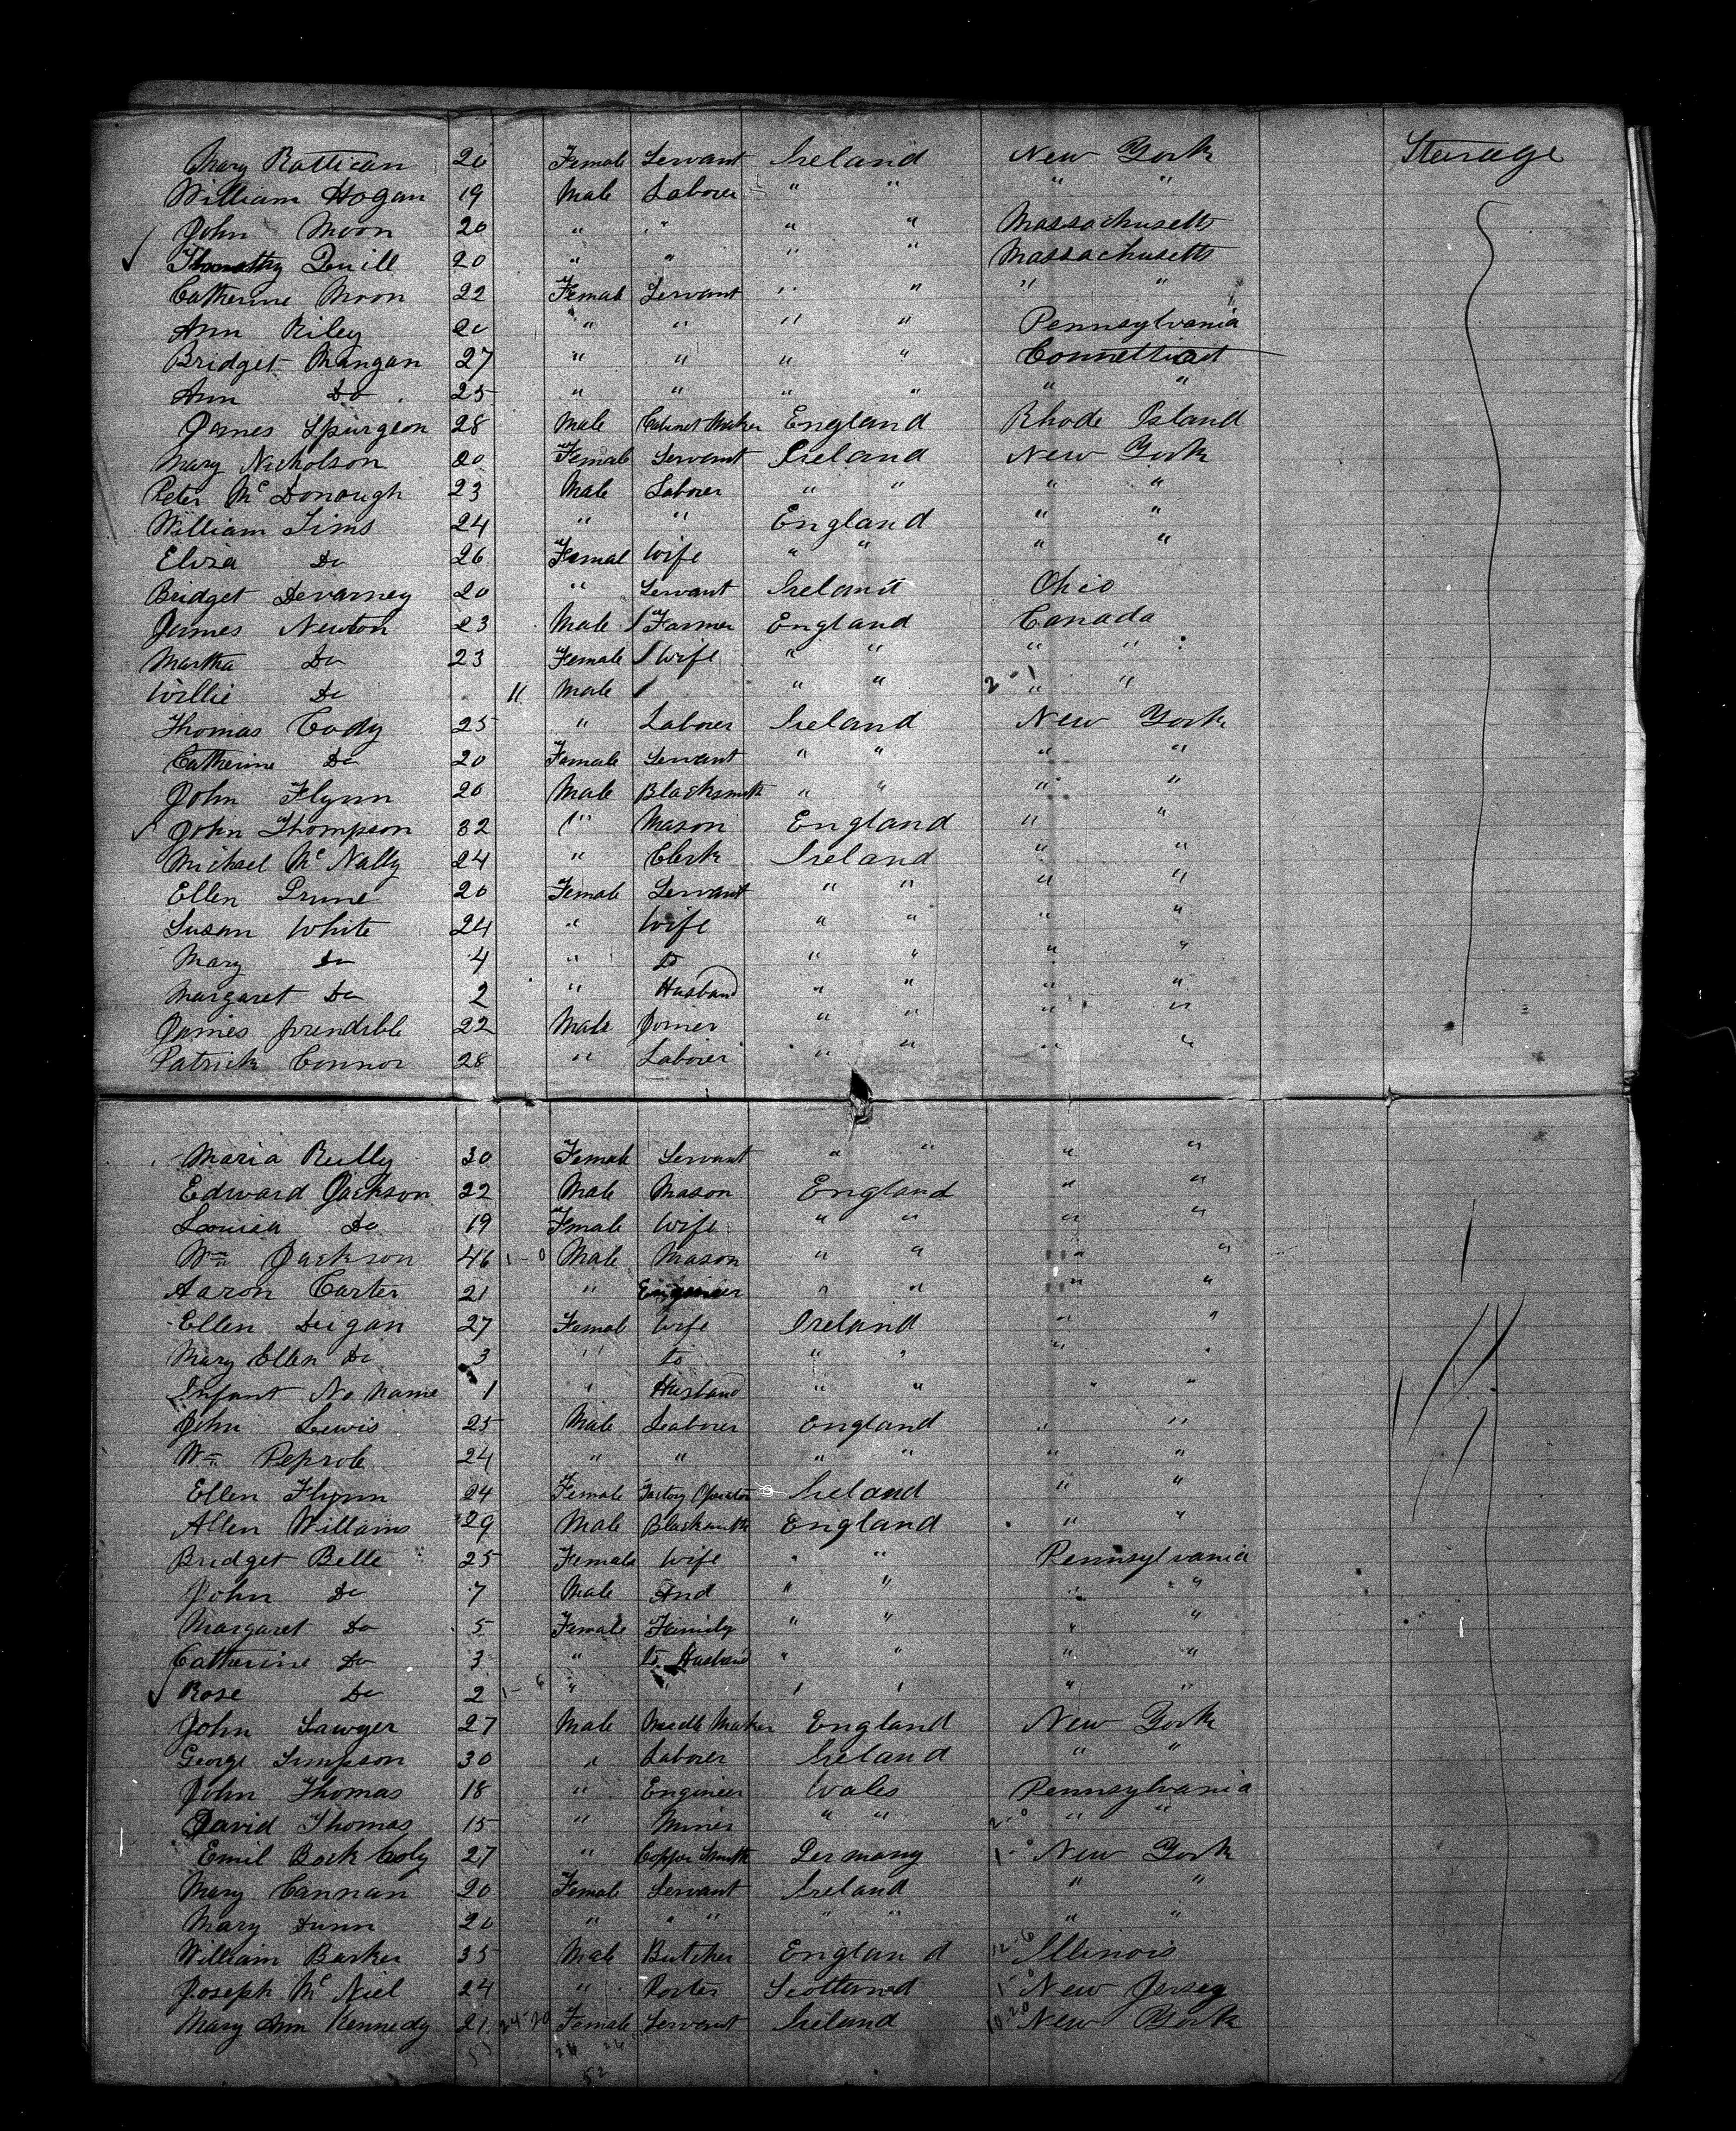 Mary Rattican 20 Female Servant Ireland New York Sterage
William Hogan 19 Male Laborer " " " "
John Moon 20 " " " " Massachusetts
Timothy Quill 20 " " " " Massachusetts
Catherine Moon 22 Female Servant " " " "
Ann Riley 20 " " " " Pennsylvania
Bridget Mangan 27 " " " "
Ann Do 25 " " " " " "
James Spurgeon 28 Male Cabinet Maker England Rhode Island
Mary Nicholson 20 Female Servant Ireland New York
Peter McDonough 23 Male Laborer " " " "
William Sims 24 " " England " "
Eliza Do 26 Femal Wife " " " "
Bridget Devarney 20 " Servant Ireland Ohio
James Newton 23 Male Farmer England Canada
Martha Do 23 Female Wife " " " "
Willie Do 11 Male " " 2-1 " "
Thomas Cody 25 " Laborer Ireland New York
Catherine Do 20 Female Servant " " " "
John Flynn 20 Male Blacksmith " " " "
John Thompson 32 " Mason England " "
Michael McNally 24 " Clerk Ireland " "
Ellen Prune 20 Female Servant " " " "
Susan White 24 " Wife " " " "
Mary Do 4 " to " " " "
Margaret Do 2 " Husband " " " "
James prendible 22 Male Joiner " " " "
Patrick Connor 28 " Laborer " " " "
Maria Reilly 30 Female Servant " " " "
Edward Jackson 22 Male Mason England " "
Louisa Do 19 Female Wife " " " "
Wm Jackson 46 1-0 Male Mason " " " "
Aaron Carter 21 " Engineer " " " "
Ellen Deigan 27 Female Wife Ireland " "
Mary Ellen Do 3 " to " " " "
Infant No Name 1 " Husband " " " "
John Lewis 25 Male Laborer England " "
Wm Peprole 24 " " " " " "
Ellen Flynn 24 Female Factory Operator Ireland " "
Allen Williams 29 Male Blacksmith England " "
Bridget Belle 25 Female Wife " " Pennsylvania
John Do 7 Male And " " " "
Margaret Do 5 Female Family " " " "
Catherine Do 3 " to Husband " " " "
Rose Do 2 1-6 " " " " " "
John Sawyer 27 Male Maker England New York
George Simpson 30 " Laborer Ireland " "
John Thomas 18 " Engineer Wales Pennsylvania
David Thomas 15 " Miner " " 2-0 " "
Emil 27 " Copper Smith Germany 1-0 New York
Mary Cannan 20 Female Servant Ireland " "
Mary Dunn 20 " " " " " " "
William Barker 35 Male Butcher England 12-6 Illinois
Joseph McNiel 24 " Porter Scotland 1-0 New Jersey
Mary Ann Kennedy 21 24-20 Female Servant Ireland 10 20 New York
26 26
52